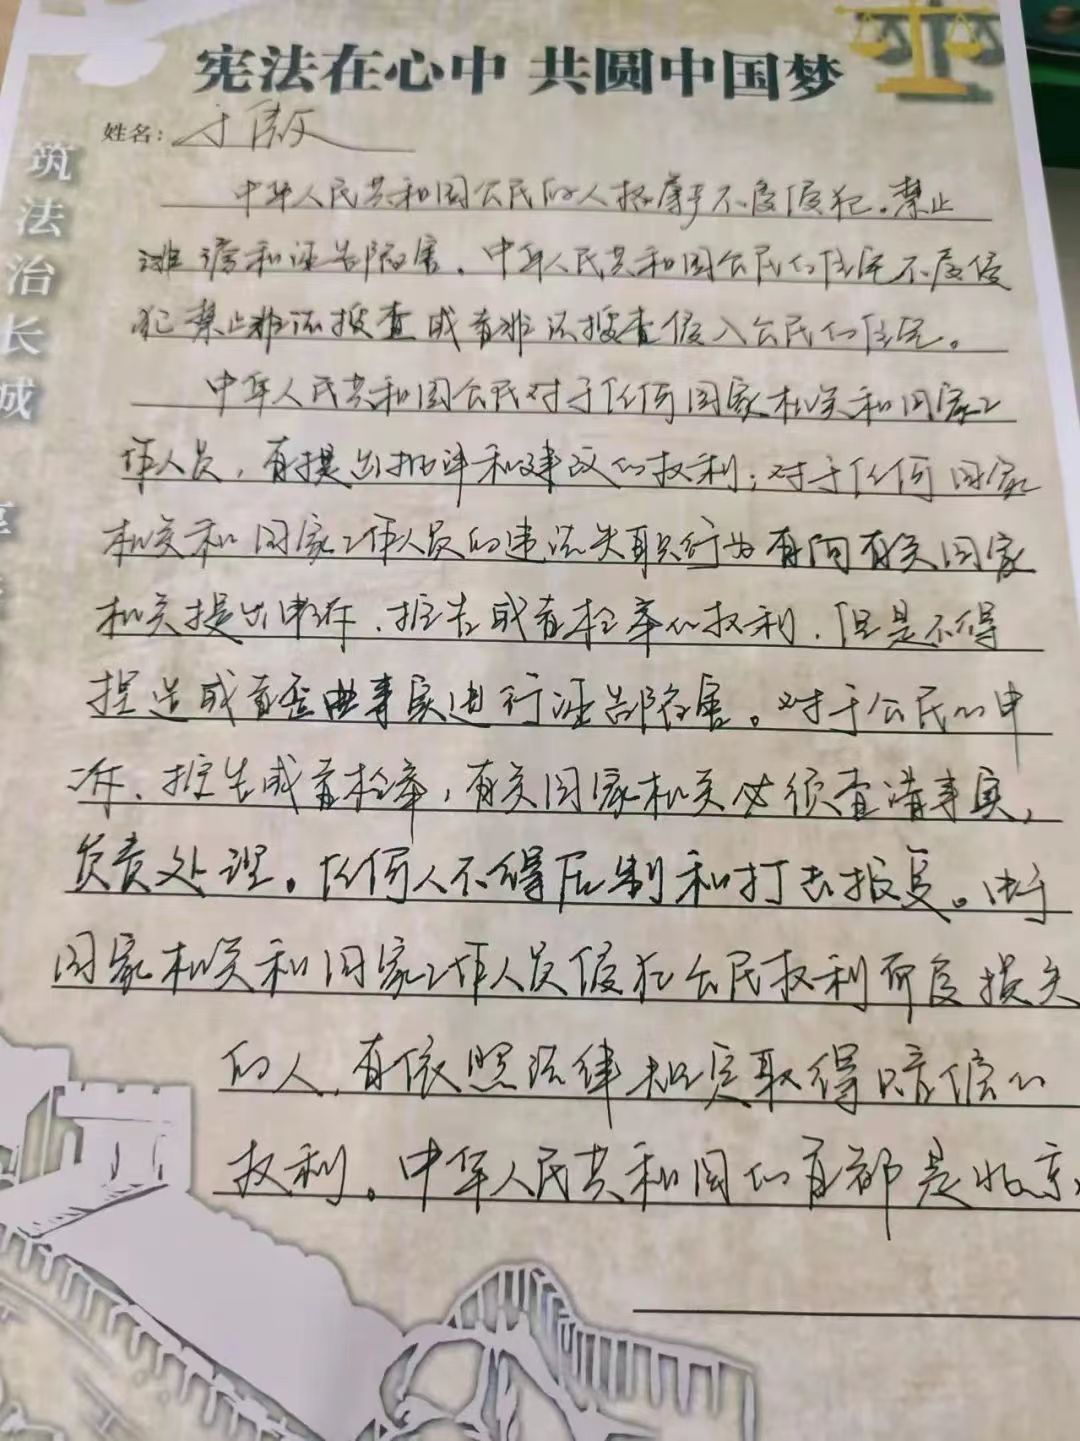 宪法在心中 共圆中国梦
姓名:
筑法治长城
中华人民共和国公民的人格尊严不受侵犯。禁止
诽谤和诬告陷害。中华人民共和国公民的住宅不受侵
犯禁止非法搜查或者非法搜查侵入公民的住宅。
中华人民共和国公民对于任何国家机关和国家工
作人员,有提出批评和建议的权利;对于任何国家
机关和国家工作人员的违法失职行为有向有关国家
机关提出申诉、控告或者检举的权利,但是不得
捏造或者歪曲事实进行诬告陷害。对于公民的申
诉、控告或者检举,有关国家机关必须查清事实,
负责处理。任何人不得压制和打击报复。由于
国家机关和国家工作人员侵犯公民权利而受损失
的人,有依照法律规定取得赔偿的
权利。中华人民共和国的首都是北京。